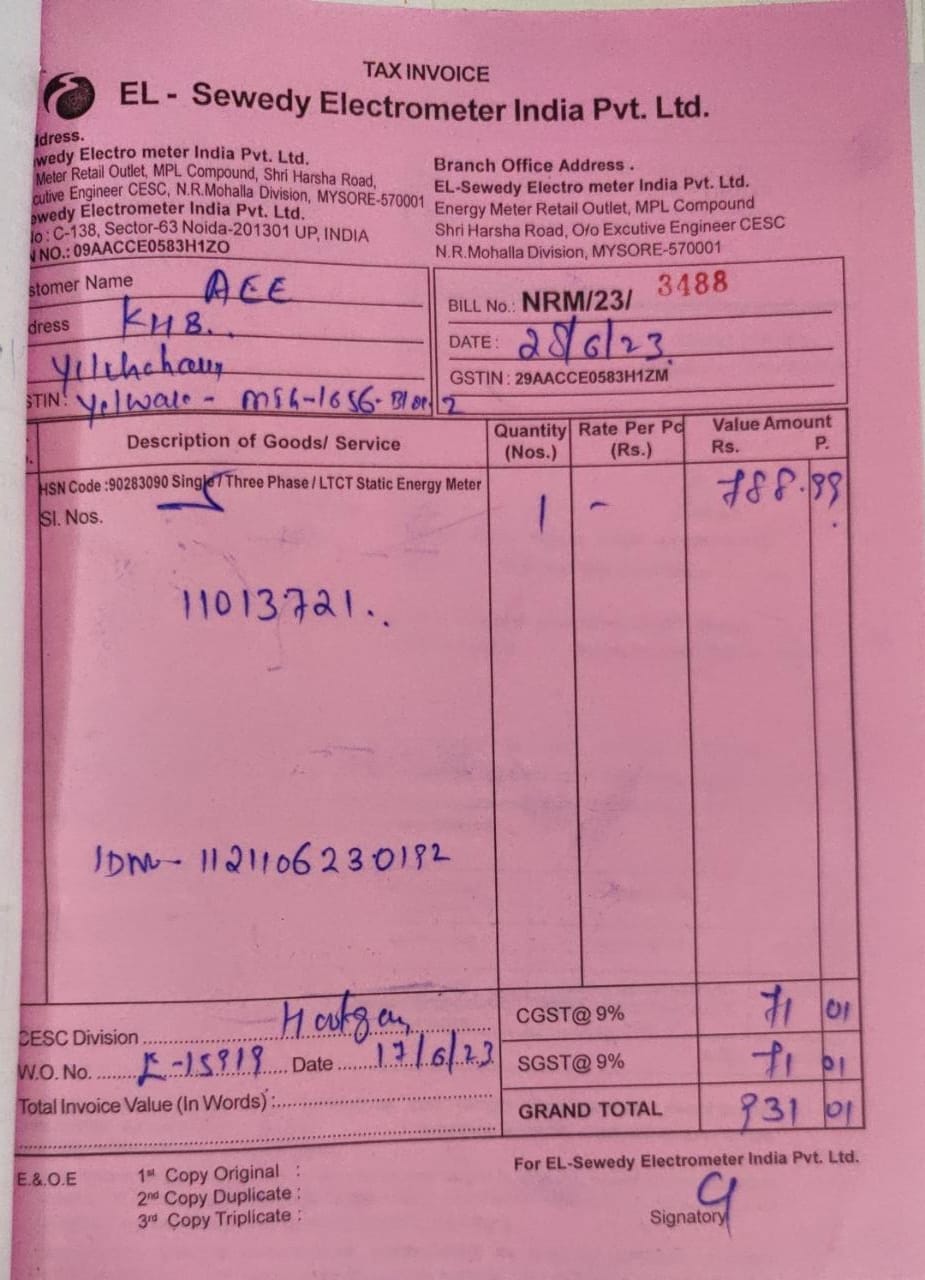 TAX INVOICE
EL - Sewedy Electrometer India Pvt. Ltd.
ddress.
wedy Electro meter India Pvt. Ltd.
Meter Retail Outlet, MPL Compound, Shri Harsha Road,
cutive Engineer CESC, N.R.Mohalla Division, MYSORE-570001
ewedy Electrometer India Pvt. Ltd.
No : C-138, Sector-63 Noida-201301 UP, INDIA
N NO.: 09AACCE0583H1ZO
Branch Office Address .
EL-Sewedy Electro meter India Pvt. Ltd.
Energy Meter Retail Outlet, MPL Compound
Shri Harsha Road, O/o Excutive Engineer CESC
N.R.Mohalla Division, MYSORE-570001
stomer Name AEE
dress KHB.
STIN: Yelwala - MIG-1656- Block 2
BILL No.: NRM/23/ 3488
DATE : 28/6/23
GSTIN : 29AACCE0583H1ZM
Description of Goods/ Service Quantity (Nos.) Rate Per Pc (Rs.) Value Amount Rs. P.
HSN Code :90283090 Single / Three Phase / LTCT Static Energy Meter 1 - 788.99
Sl. Nos.
11013721.
IDM - 1121106230192
CESC Division
W.O. No. E-15919 Date 17/6/23
Total Invoice Value (In Words) :
CGST@ 9% 71 01
SGST@ 9% 71 01
GRAND TOTAL 931 01
E.&.O.E
1st Copy Original :
2nd Copy Duplicate :
3rd Copy Triplicate :
For EL-Sewedy Electrometer India Pvt. Ltd.
Signatory